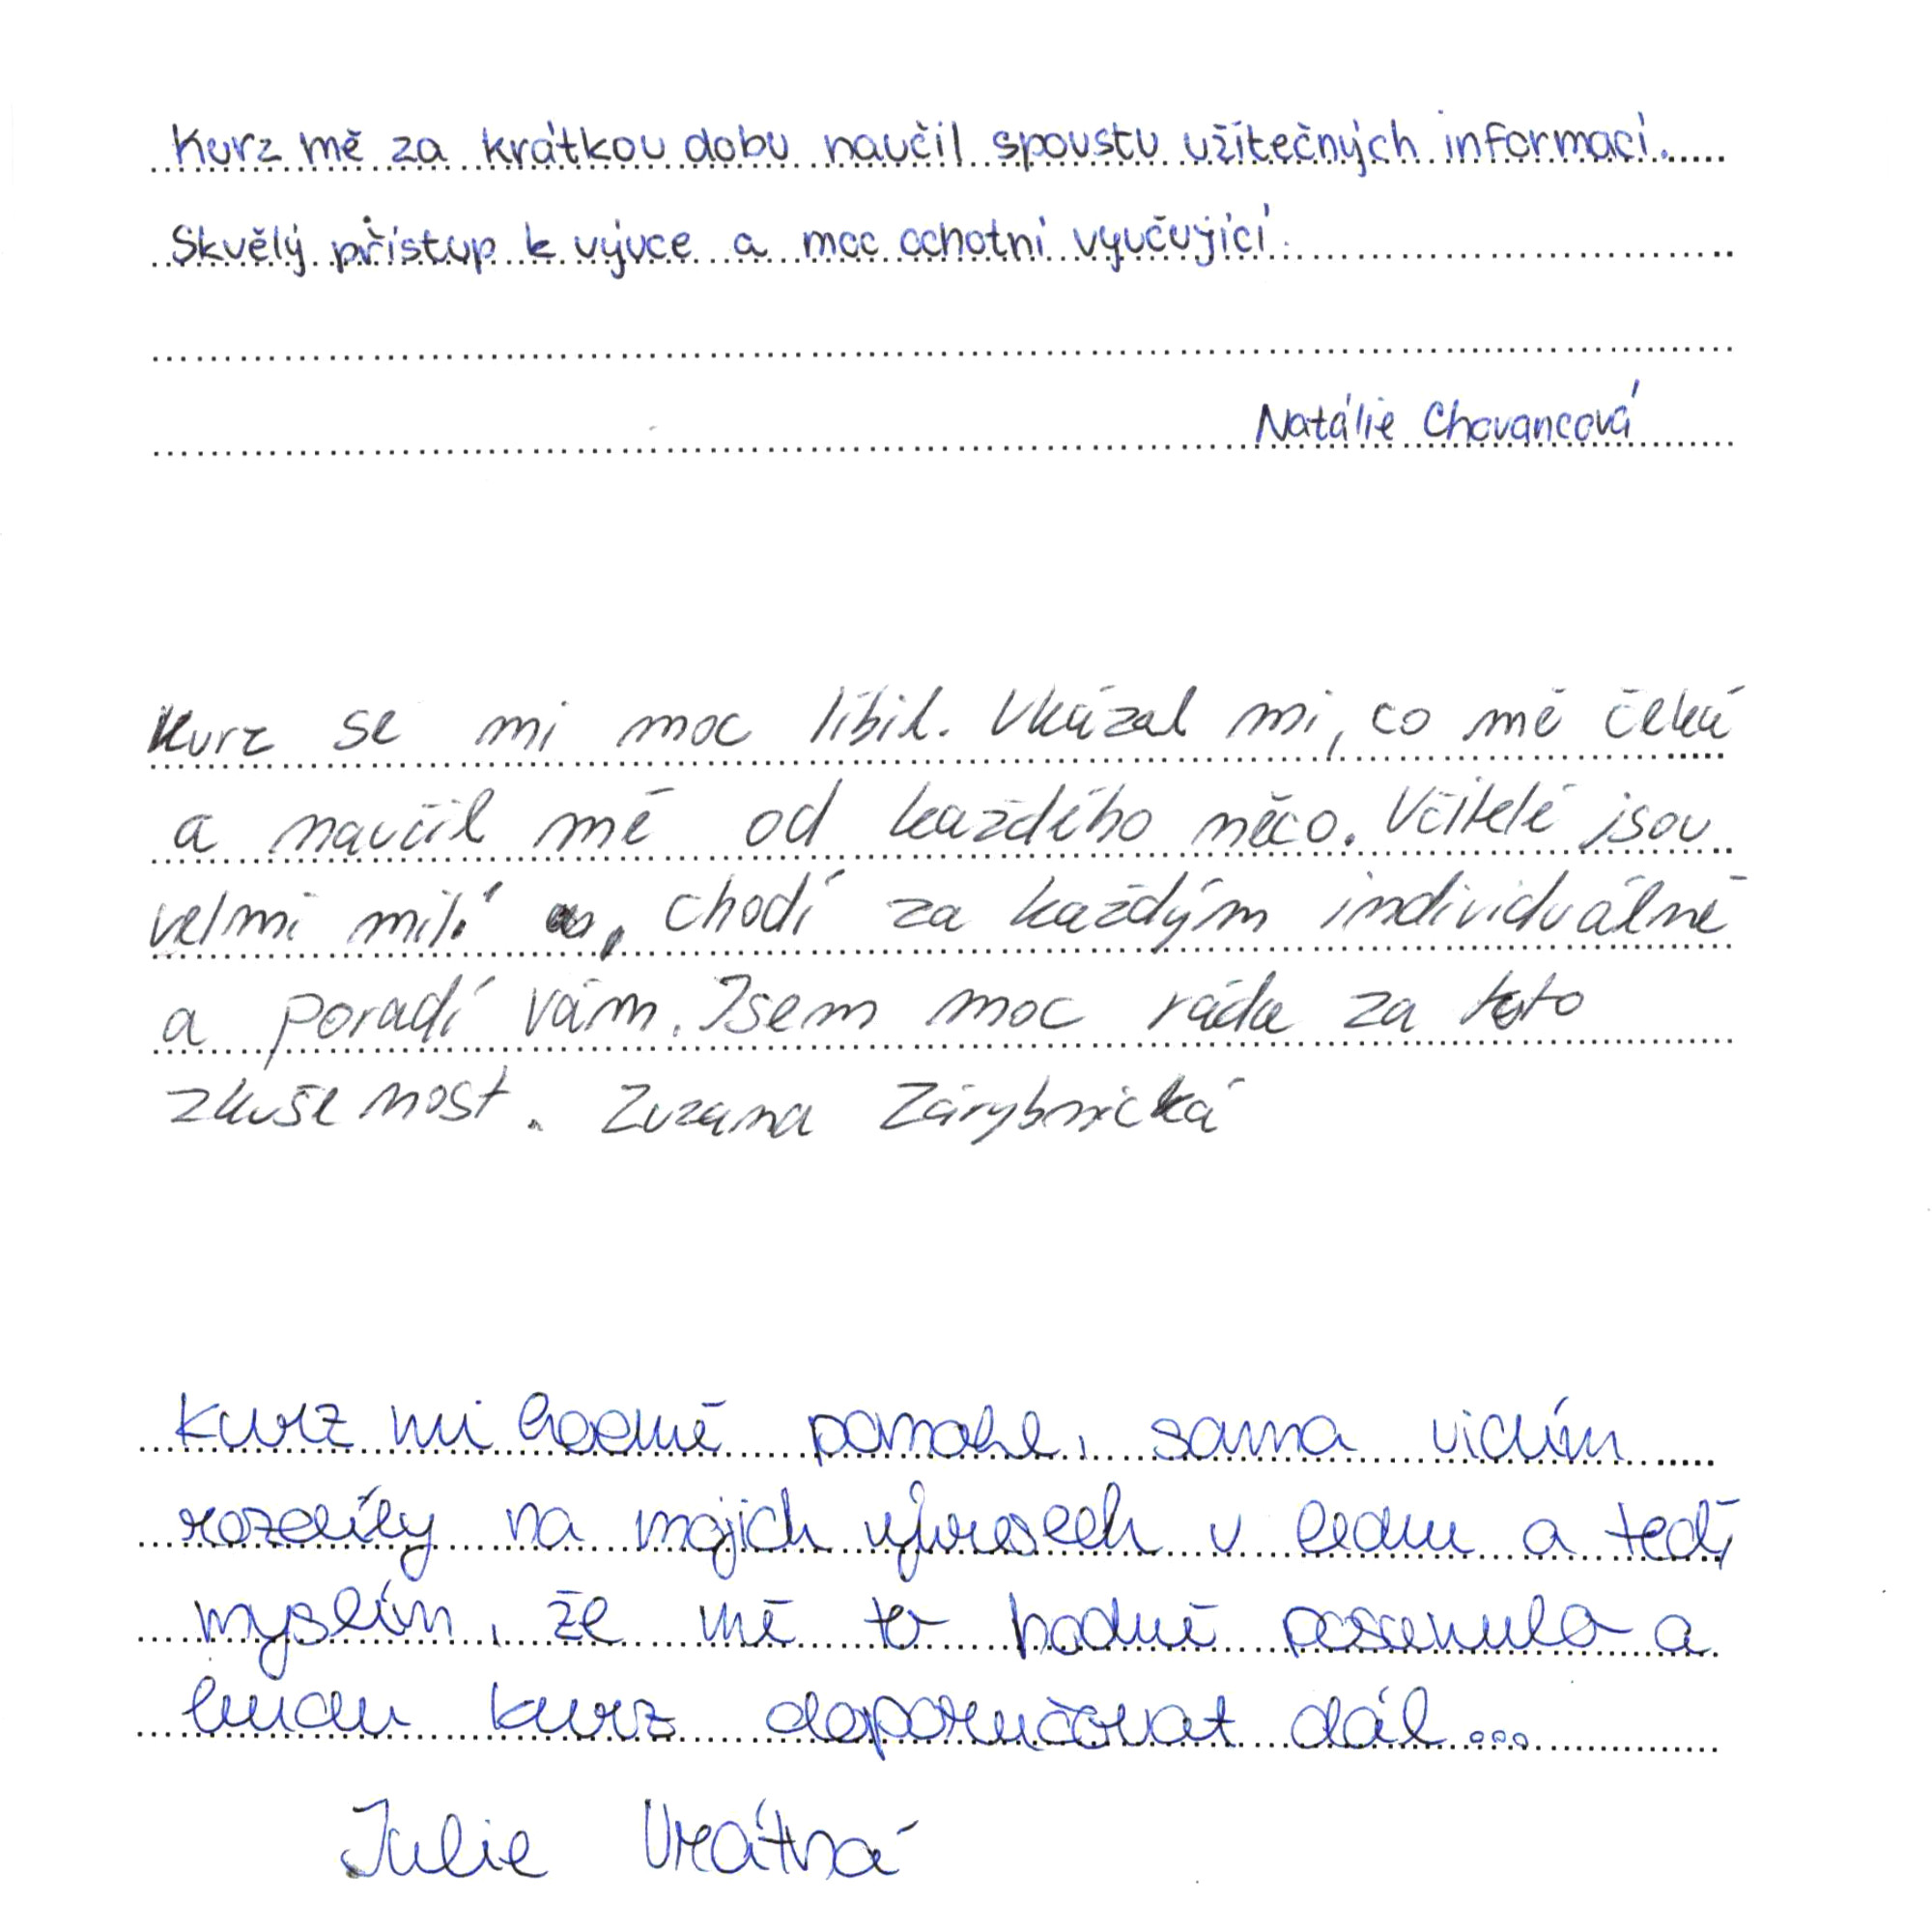 Kurz mě za krátkou dobu naučil spoustu užitečných informací.
Skvělý přístup k výuce a moc ochotní vyučující.
Natálie Chovancová
Kurz se mi moc líbil. Ukázal mi, co mě čeká
a naučil mě od každého něco. Učitelé jsou
velmi milí, chodí za každým individuálně
a poradí vám. Jsem moc ráda za tuto
zkušenost. Zuzana Zárybnická
Kurz mi hodně pomohl, sama vidím
rozdíly na mojich výkresech v lednu a teď,
myslím, že mě to hodně posunulo a
budu kurz doporučovat dál...
Julie Vrátná